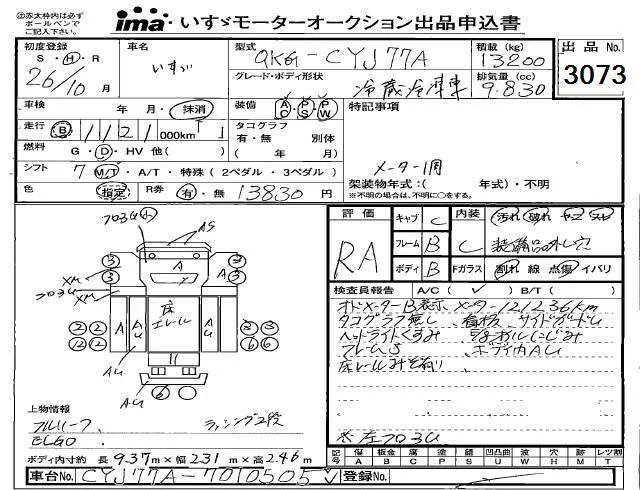 ②赤太枠内は必ず
ボールペンで
ご記入下さい。
ima いすゞモーターオークション出品申込書
初度登録
S・H・R
26/10 月
車名
いすゞ
型式
QKG-CYJ77A
グレード・ボディ形状
冷蔵冷凍車
積載 (kg)
13200
排気量 (cc)
9.830
出品 No.
3073
車検 年 月・抹消
走行 B 1121 000km
燃料 G・D・HV 他( )
シフト 7 M/T・A/T・特殊(2ペダル・3ペダル)
色 指定 R券 有・無 13830 円
装備 AC PS PW
タコグラフ
有・無 別体
( 年 月)
特記事項
メーター1周
架装物年式:( 年式)・不明
※不明の場合は、不明に○をする。
評価
RA
キャブ C
フレーム B
ボディ B
内装 汚れ 破れ ヤニ スレ
C 装備品外し穴
Fガラス 割れ 線 点傷 イバリ
検査員報告 A/C( ) B/T( )
オドメーターB表示 メーター121236km
タコグラフ無し、
サイドガードU
ヘッドライトくすみ
フレームS ボディ内AU
床レールみぞ有り
※左フロ3U
フロ3U小
AS
A
3
3
3
3
XM
XM
フロ3U
A
AU
床
エレール
A
AU
2 2
12 12
3 3
6 6
AU
6
上物情報
フルハーフ
ラッシング2段
ELGO
ボディ内寸約 長 9.37 m×幅 2.31 m×高 2.46 m
記号 傷 板金 腐 塗 錆 凹凸曲 波 穴 時計 点滅 レツ割
A B C P S U W H M T
車台No. CYJ77A-7010505
登録No.